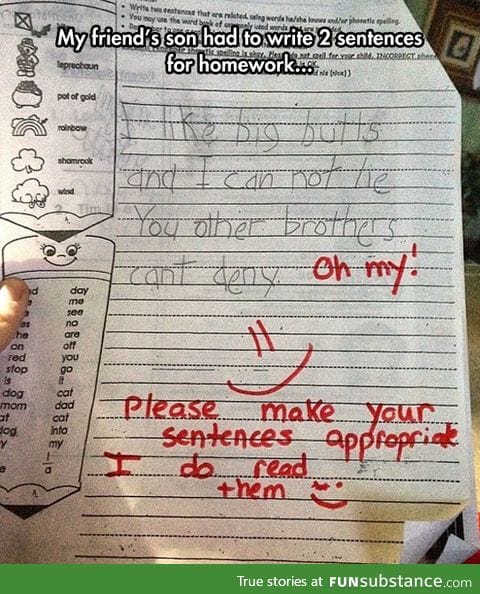 Write two sentences that are related, using words he/she knows and/or phonetic spelling.
You may use the word bank of commonly used words
My friend's son had to write 2 sentences
for homework...
spelling is okay. Please do not spell for your child. INCORRECT
leprechaun
pot of gold
rainbow
shamrock
wind
I like big butts
and I can not lie
You other brothers
cant deny. Oh my!
day
me
see
he no
on are
red off
stop you
is go
dog it
mom cat
at dad
cat
into
my
I
a
Please make your
sentences appropriate
I do read
them
True stories at FUNsubstance.com